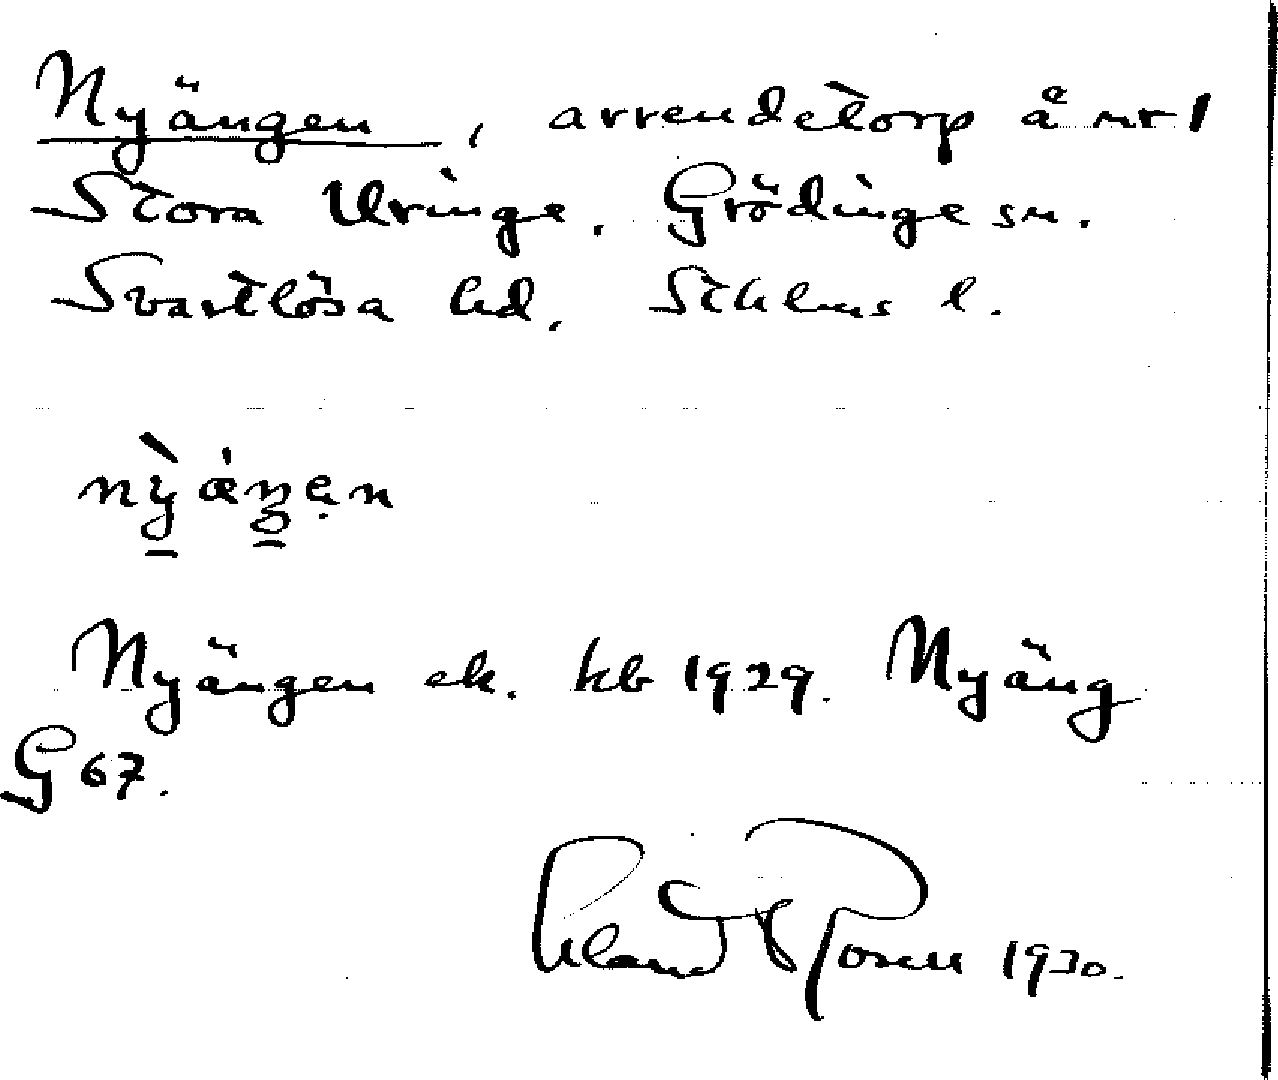 Nyängen, arrendetorp å nr 1
Stora Uringe. Grödinge sn.
Svartlösa hd. Sthlms l.
nỳǽŋẹn
Nyängen ek. kb 1929. Nyäng
G 67.
Rosell 1930.